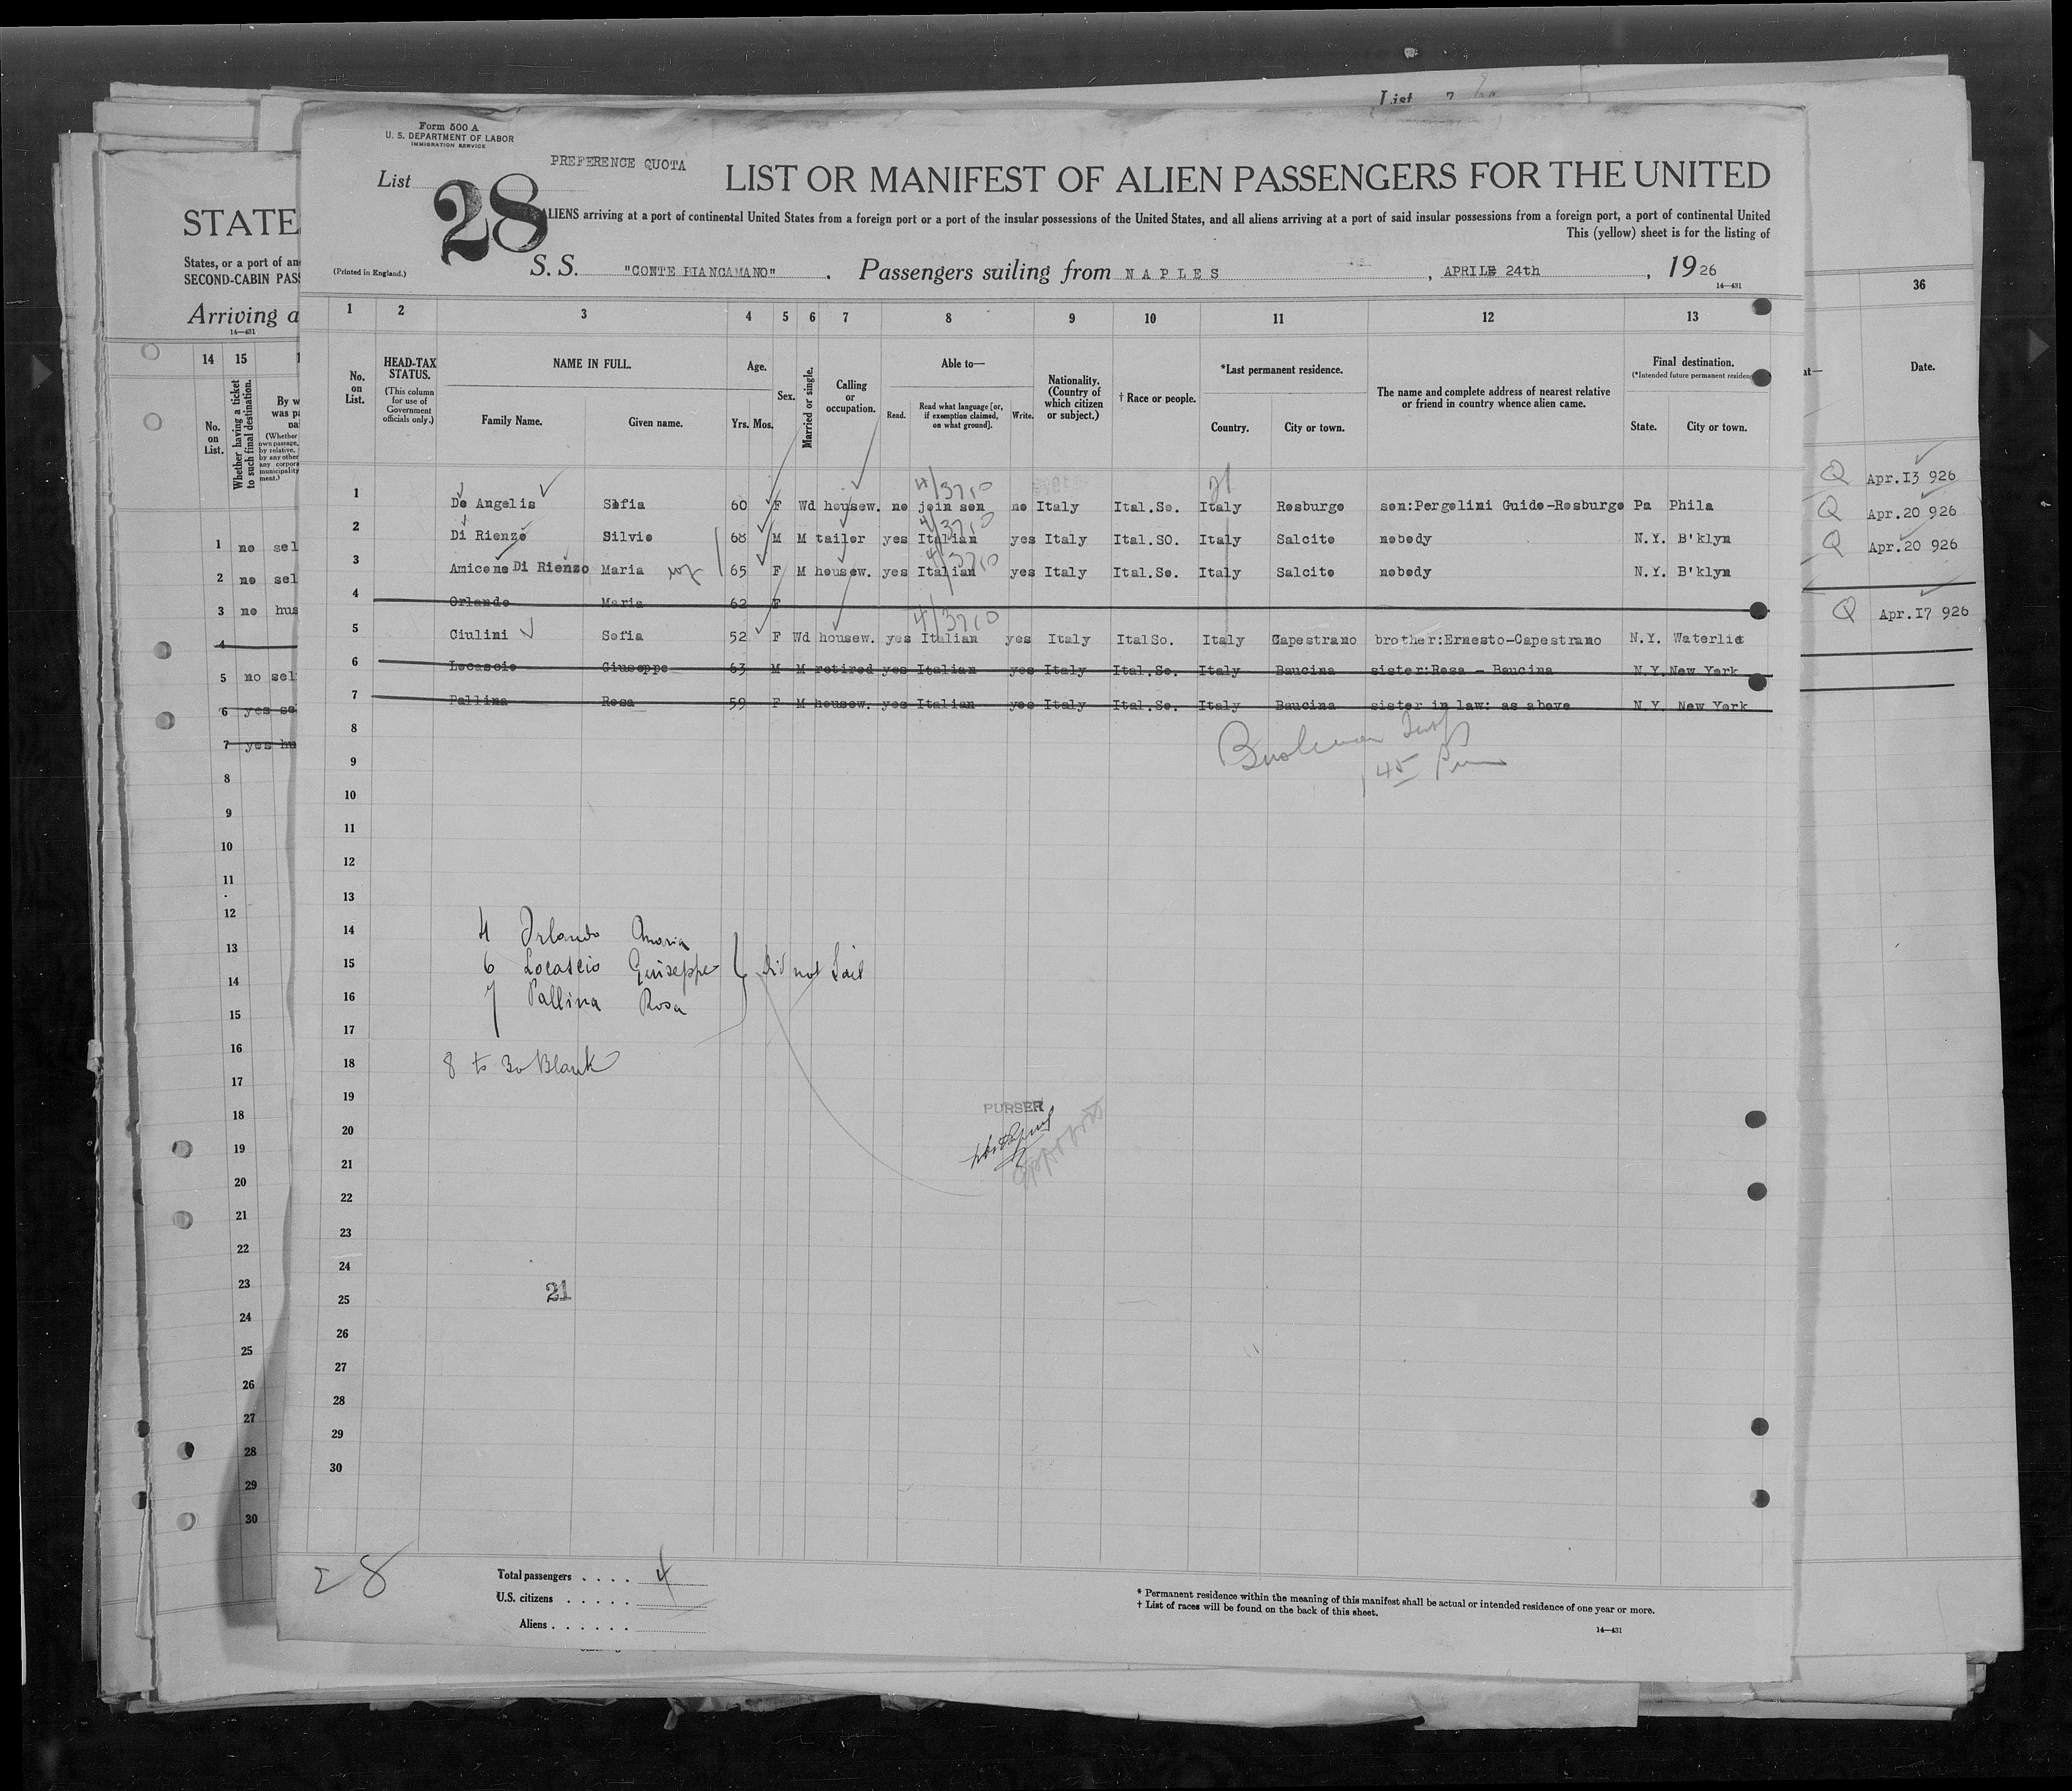 List 7
Form 500 A
U. S. DEPARTMENT OF LABOR
IMMIGRATION SERVICE
PREFERENCE QUOTA
List 28
LIST OR MANIFEST OF ALIEN PASSENGERS FOR THE UNITED
ALIENS arriving at a port of continental United States from a foreign port or a port of the insular possessions of the United States, and all aliens arriving at a port of said insular possessions from a foreign port, a port of continental United
This (yellow) sheet is for the listing of
(Printed in England.)
S. S. "CONTE BIANCAMANO". Passengers sailing from NAPLES, APRILE 24th, 1926
14—431
1 2 3 4 5 6 7 8 9 10 11 12 13
No. on List.
HEAD-TAX STATUS.
(This column for use of Government officials only.)
NAME IN FULL.
Family Name. Given name.
Age.
Yrs. Mos.
Sex.
Married or single.
Calling or occupation.
Able to—
Read. Read what language [or, if exemption claimed, on what ground]. Write.
Nationality. (Country of which citizen or subject.)
† Race or people.
*Last permanent residence.
Country. City or town.
The name and complete address of nearest relative or friend in country whence alien came.
Final destination.
(*Intended future permanent residen
State. City or town.
1 De Angelis Sofia 60 F Wd housew. no join son no Italy Ital.So. Italy Rosburgo son:Pergolini Guido-Rosburgo Pa Phila
2 Di Rienzo Silvio 68 M M tailor yes Italian yes Italy Ital.SO. Italy Salcito nobody N.Y. B'klyn
3 Amicone Di Rienzo Maria 65 F M housew. yes Italian yes Italy Ital.So. Italy Salcito nobody N.Y. B'klyn
4 Orlando Maria 62 F
5 Ciulini Sofia 52 F Wd housew. yes Italian yes Italy ItalSo. Italy Capestrano brother:Ernesto-Capestrano N.Y. Waterlio
6 Locascio Giuseppe 63 M M retired yes Italian yes Italy Ital.So. Italy Baucina sister:Rosa - Baucina N.Y. New York
7 Pallina Rosa 59 F M housew. yes Italian yes Italy Ital.So. Italy Baucina sister in law: as above N.Y. New York
8
9
10
11
12
13
14
15
16
17
18
19
20
21
22
23
24
25
26
27
28
29
30
4 Orlando Maria
6 Locascio Guiseppe did not Sail
7 Pallina Rosa
8 to 30 Blank
PURSER
21
28
Total passengers . . . . 4
U.S. citizens . . . . .
Aliens . . . . . .
* Permanent residence within the meaning of this manifest shall be actual or intended residence of one year or more.
† List of races will be found on the back of this sheet.
14—431
STATE
States, or a port of an
SECOND-CABIN PAS
Arriving a
14—431
14 15
No. on List.
Whether having a ticket to such final destination.
By w
was pa
(Whether
own passage,
by relative,
by any other
any corpora
municipality
ment.)
1 no sel
2 no sel
3 no hus
4
5 no sel
6 yes se
7 yes hu
8
9
10
11
12
13
14
15
16
17
18
19
20
21
22
23
24
25
26
27
28
29
30
36
at—
Date.
Q Apr.13 926
Q Apr.20 926
Q Apr.20 926
Q Apr.17 926